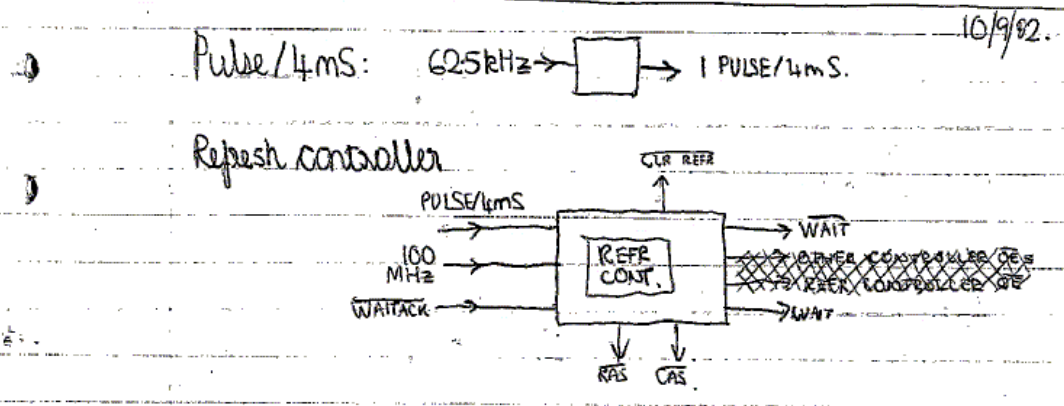 10/9/82.
Pulse/4mS: 62.5kHz → 1 PULSE/4mS.
Refresh controller
CLR REFR
PULSE/4mS
WAIT
100
MHz
REFR
CONT.
OTHER CONTROLLER OEs
REFR CONTROLLER OE
WAITACK
WAIT
RAS CAS.